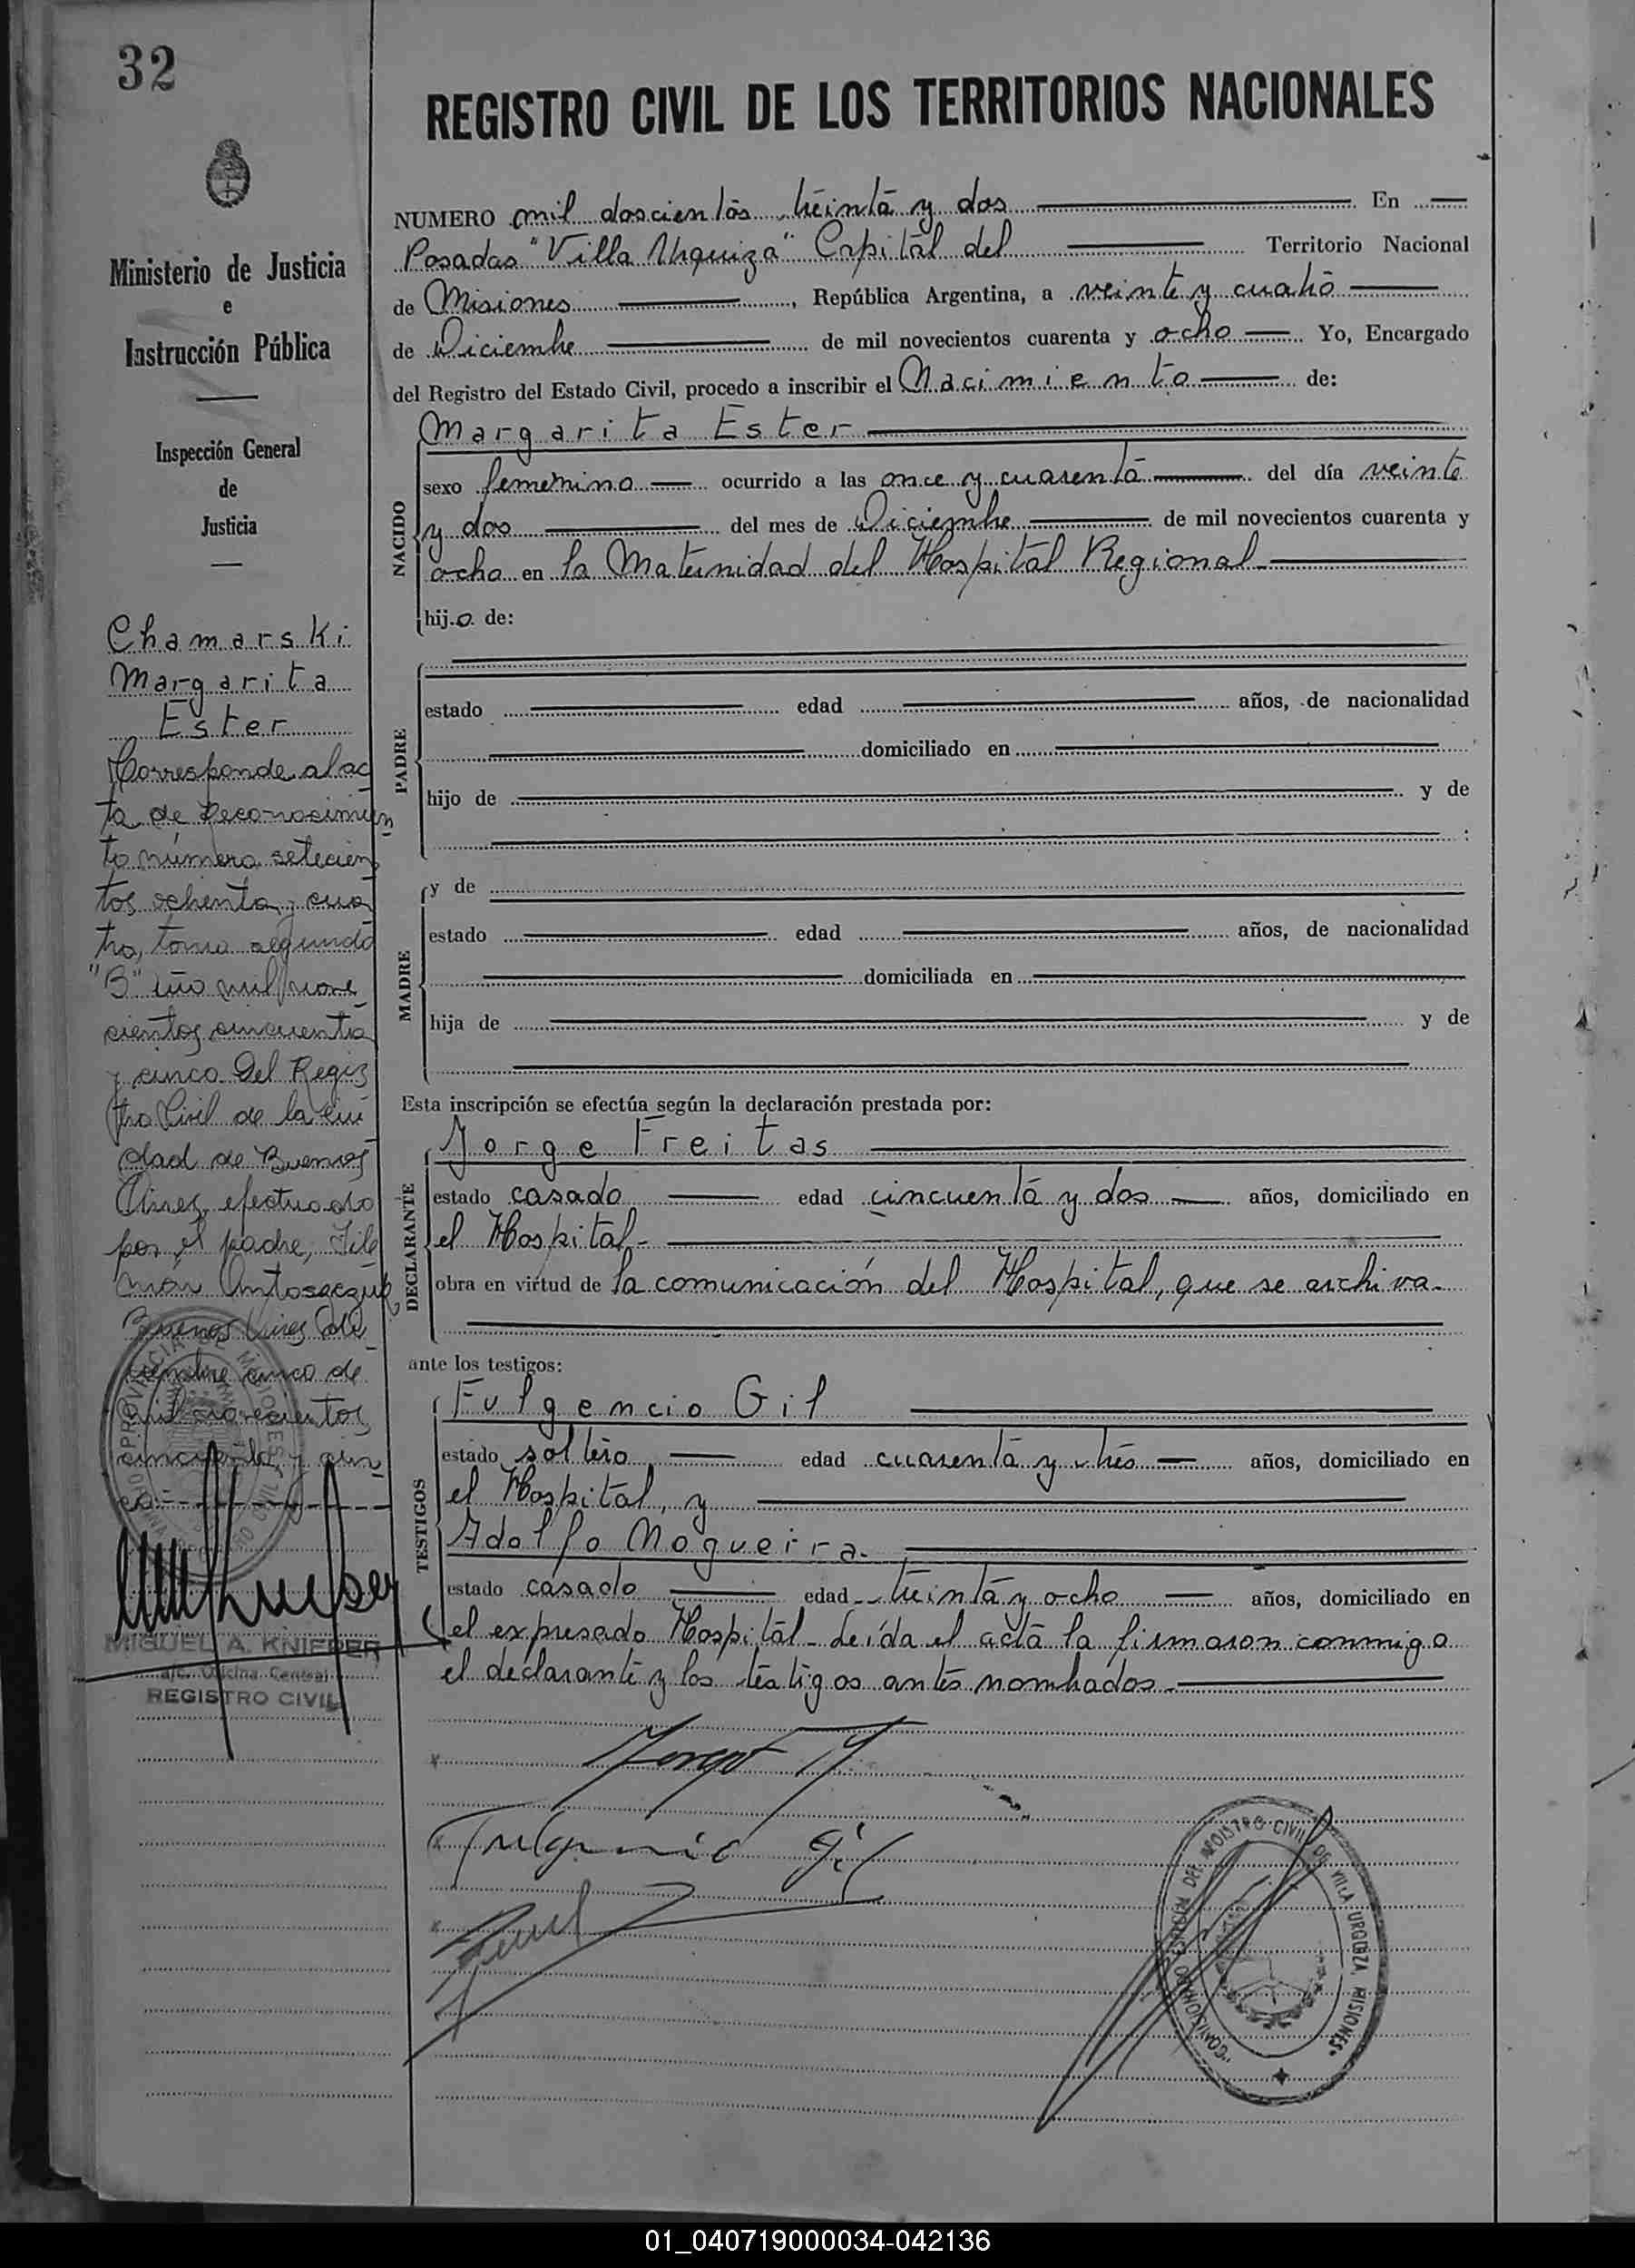 32
REGISTRO CIVIL DE LOS TERRITORIOS NACIONALES
Ministerio de Justicia
e
Instrucción Pública
Inspección General
de
Justicia
Chamarski
Margarita
Ester
Corresponde al ac
ta de Reconocimien
to número setecien
tos ochenta y cua
tro, tomo segundo
"B" año mil nove
cientos cincuenta
y cinco del Regis
tro Civil de la ciu
dad de Buenos
Aires, efectuado
por el padre, File
món
Buenos Aires
ciembre cinco de
mil novecientos
cincuenta y cin
co.-
MIGUEL A. KNIEPER
a/c. Oficina Central
REGISTRO CIVIL
NUMERO mil doscientos treinta y dos En
Posadas "Villa Urquiza" Capital del Territorio Nacional
de Misiones, República Argentina, a veinte y cuatro
de Diciembre de mil novecientos cuarenta y ocho Yo, Encargado
del Registro del Estado Civil, procedo a inscribir el Nacimiento de:
NACIDO
Margarita Ester
sexo femenino ocurrido a las once y cuarenta del día veinte
y dos del mes de Diciembre de mil novecientos cuarenta y
ocho en la Maternidad del Hospital Regional
hijo de:
PADRE
estado edad años, de nacionalidad
domiciliado en
hijo de y de
:
MADRE
y de
estado edad años, de nacionalidad
domiciliada en
hija de y de
Esta inscripción se efectúa según la declaración prestada por:
DECLARANTE
Jorge Freitas
estado casado edad cincuenta y dos años, domiciliado en
el Hospital-
obra en virtud de la comunicación del Hospital, que se archiva-
ante los testigos:
TESTIGOS
Fulgencio Gil
estado soltero edad cuarenta y trés años, domiciliado en
el Hospital, y
Adolfo Nogueira.
estado casado edad treinta y ocho años, domiciliado en
el expresado Hospital- Leída el acta la firmaron conmigo
el declarante y los testigos antes nombrados.
Fulgencio Gil
COMISIONADO ESPECIAL DEL REGISTRO CIVIL DE VILLA URQUIZA, MISIONES
01_040719000034-042136